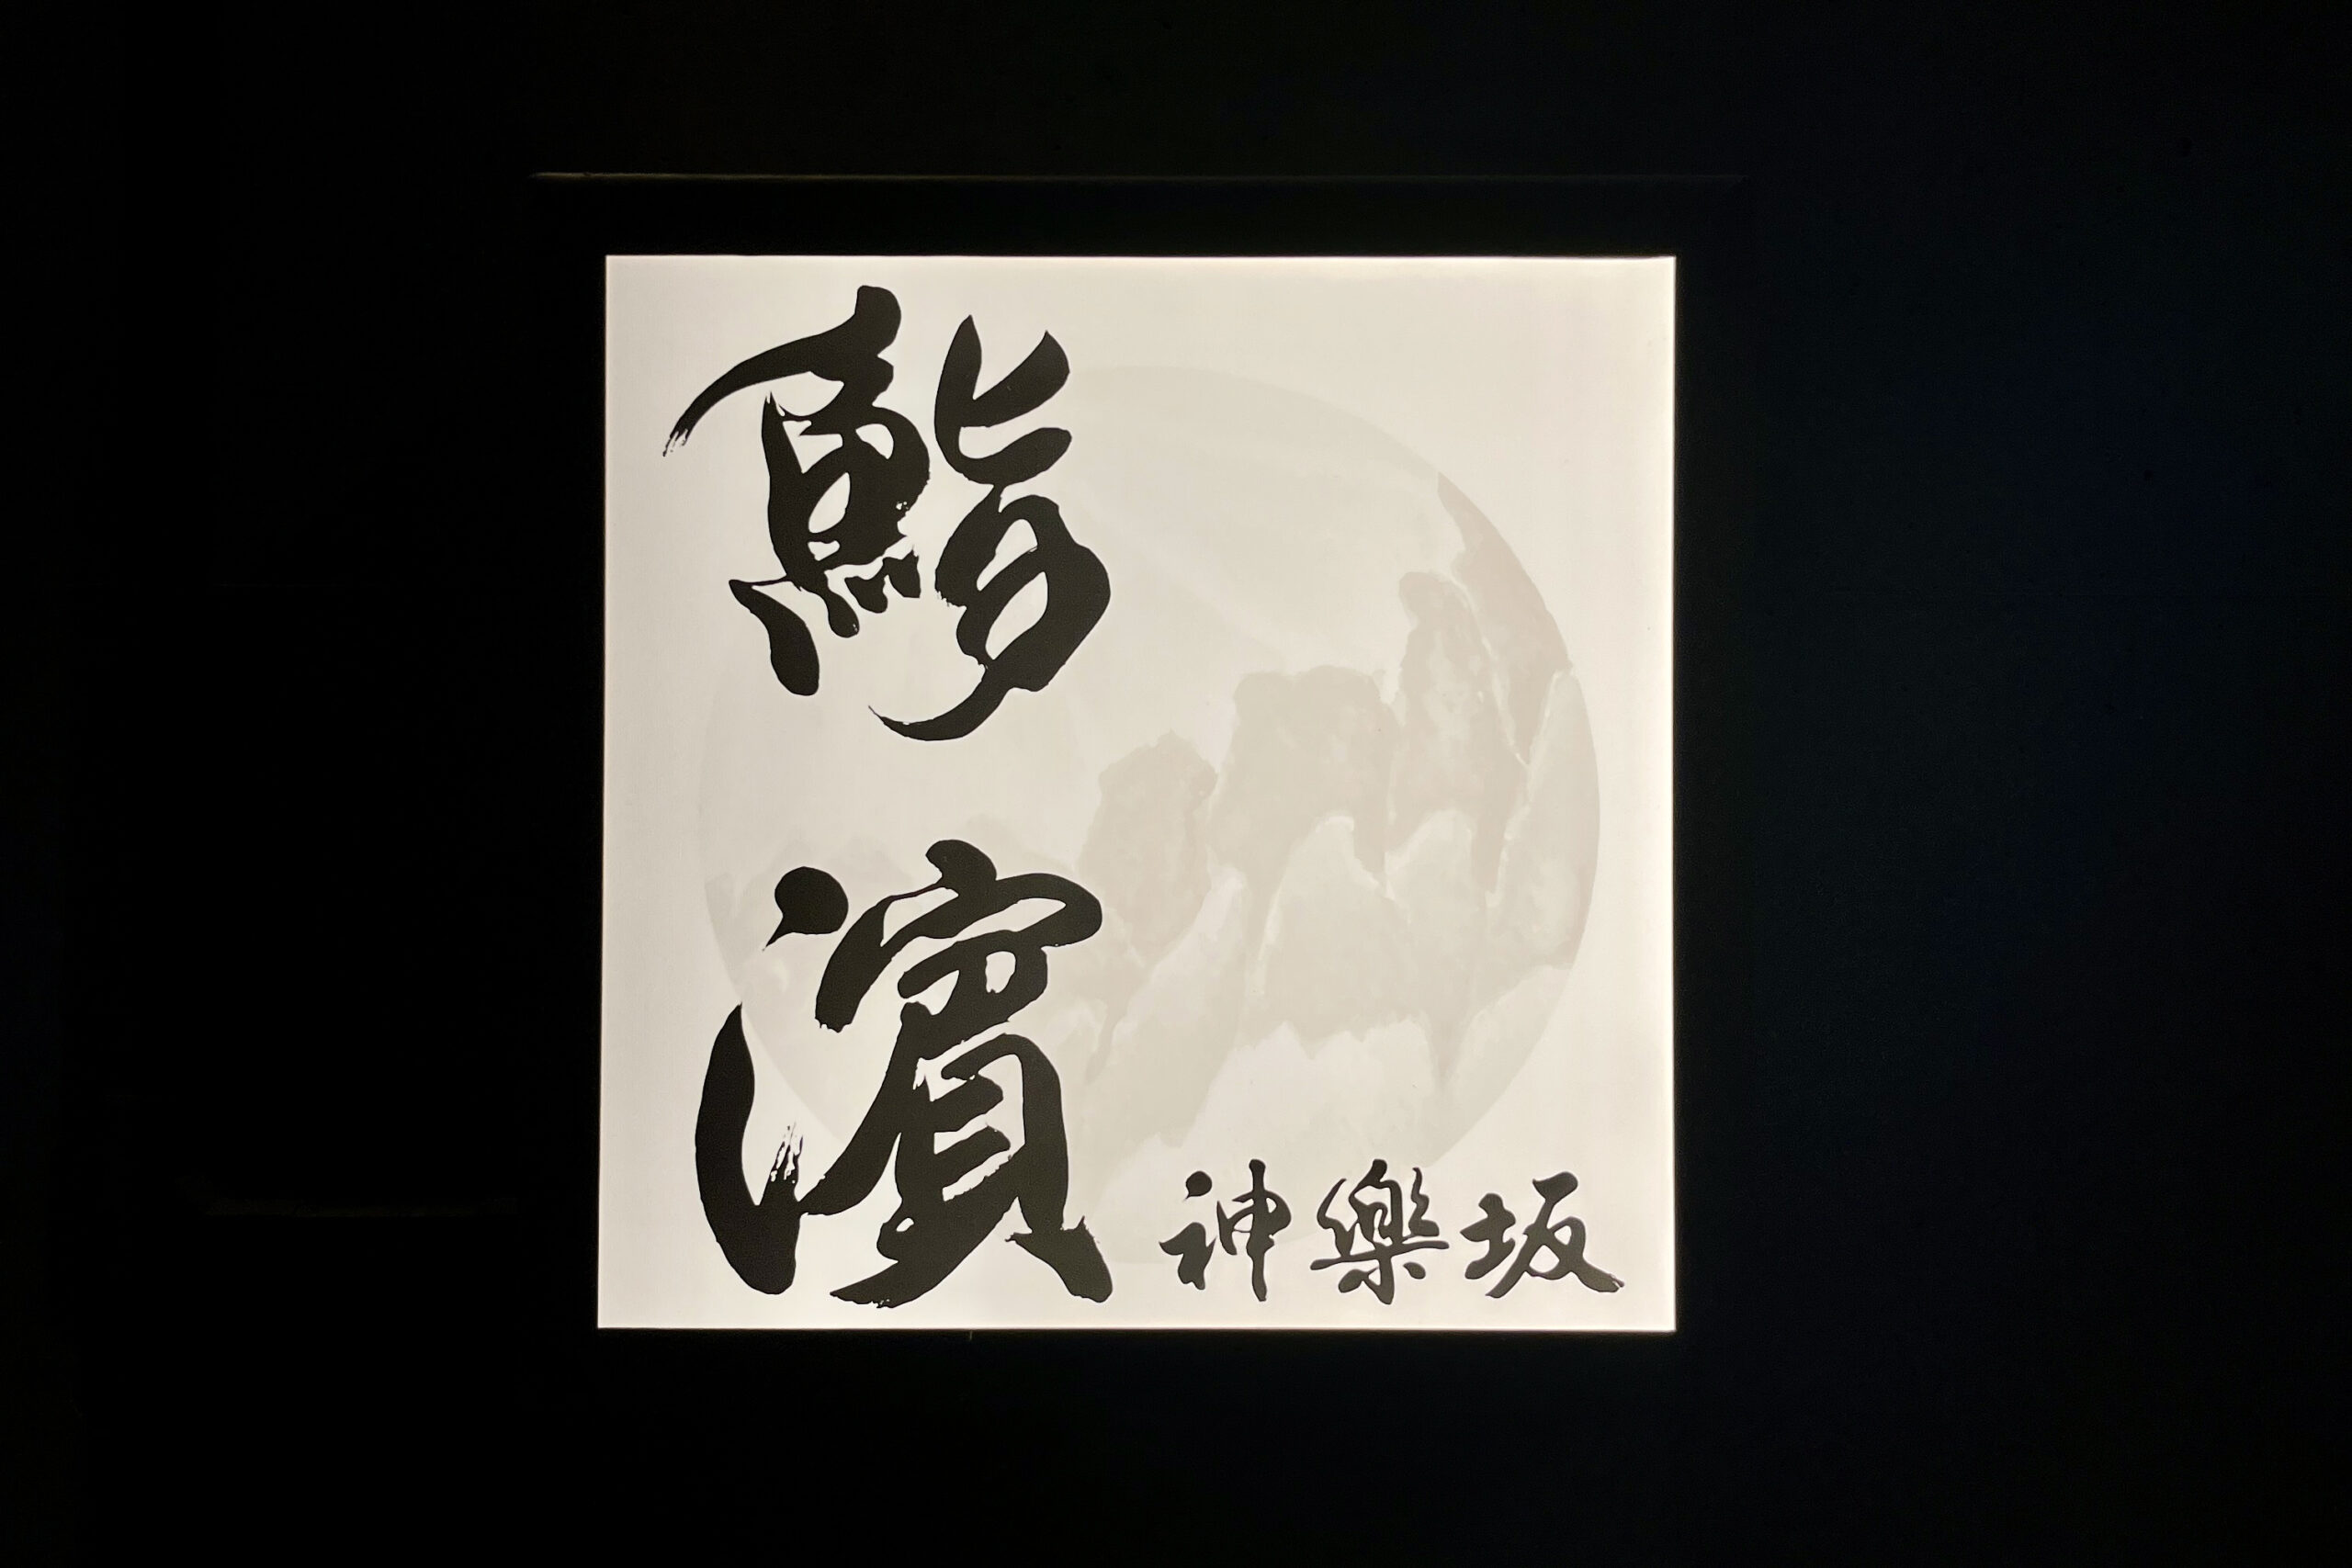 鮨
濱
神樂坂